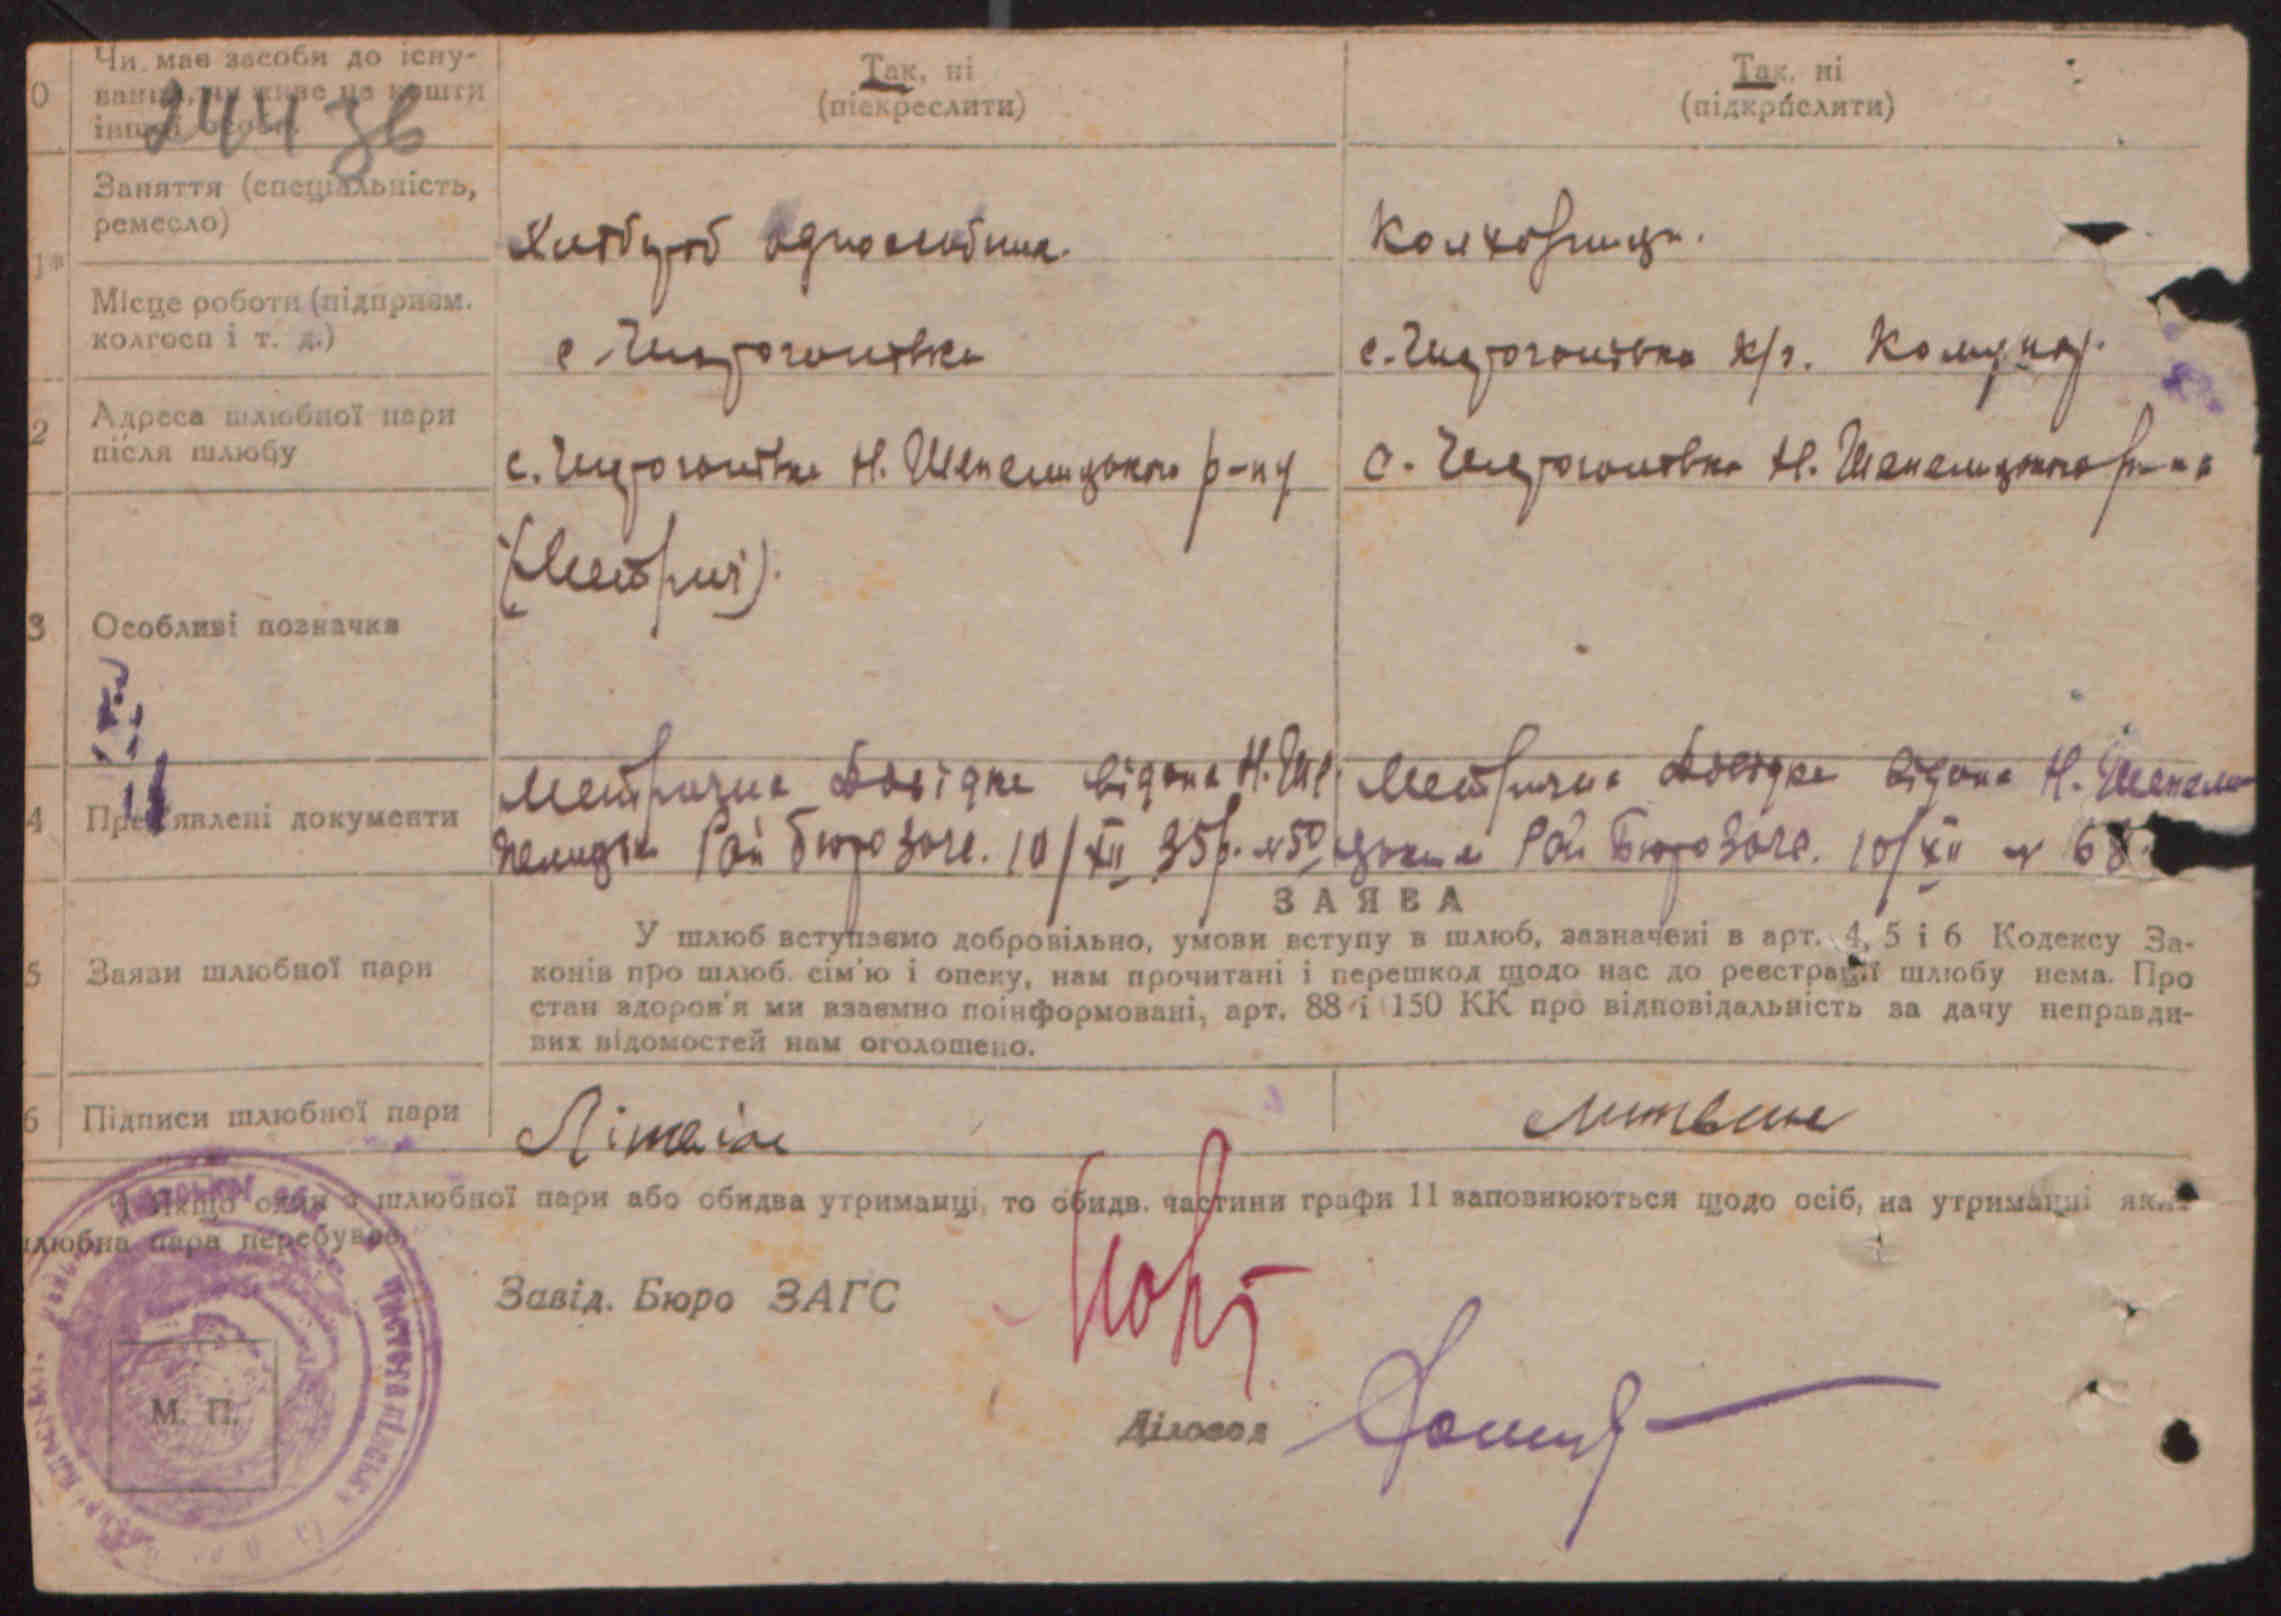 0 Чи має засоби до існу-
вання, чи живе на кошти
іншої особи.
244 зв
Так, ні
(піекреслити)
Так, ні
(підкрислити)
Заняття (спеціальність,
ремесло)
Хлібороб односібник.
Колхозниця.
1*
Місце роботи (підприєм.
колгосп і т. д.)
с.
с. к/г. Комунар.
2 Адреса шлюбної пари
після шлюбу
с. Н. Шепелицького р-ну
с. Н. Шепелицького р-на
(Метричі).
3 Особливі позначки
4 Пред'явлені документи
Метрична довідка видана Н. Ше
пелицьк Рай Бюро Загс. 10/XII 35р. № 50
Метрична довідка видана Н. Шепели
цьким Рай Бюро Загс. 10/XII № 68.
ЗАЯВА
5 Заяви шлюбної пари
У шлюб вступаємо добровільно, умови вступу в шлюб, зазначені в арт. 4, 5 і 6 Кодексу За-
конів про шлюб. сім'ю і опеку, нам прочитані і перешкод щодо нас до реєстрації шлюбу нема. Про
стан здоров'я ми взаємно поінформовані, арт. 88 і 150 КК про відповідальність за дачу неправди-
вих відомостей нам оголошено.
6 Підписи шлюбної пари
Літвін
Литвин
*) Якщо один з шлюбної пари або обидва утриманці, то обидв. частини графи 11 заповнюються щодо осіб, на утриманні яких
шлюбна пара перебуває.
Завід. Бюро ЗАГС
М. П.
Діловод